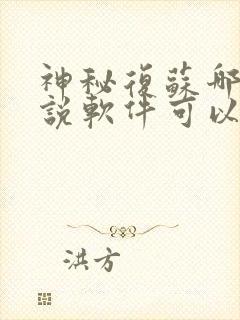 神秘復蘇哪
說軟件可以
洪方